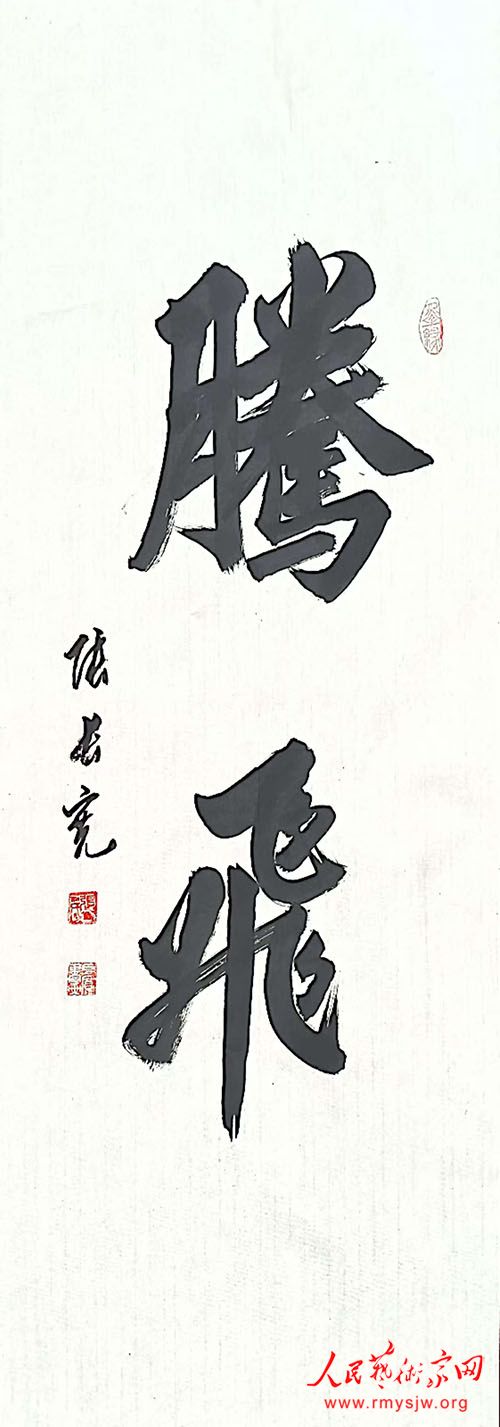 騰飛
張長寬
人民藝術家网
www.rmysjw.org